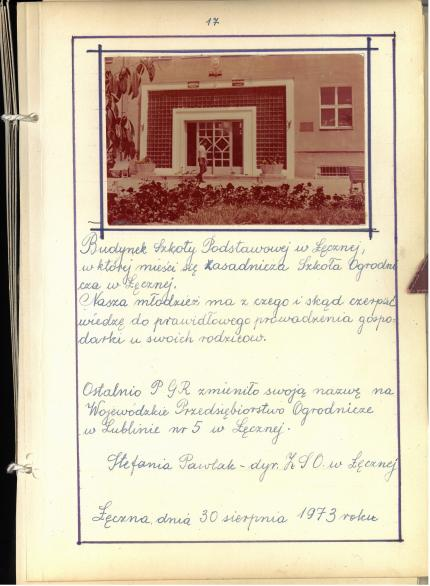 17
Budynek Szkoły Podstawowej w Łęcznej,
w której mieści się Zasadnicza Szkoła Ogrodni
cza w Łęcznej.
Nasza młodzież ma z czego i skąd czerpać
wiedzę do prawidłowego prowadzenia gospo-
darki u swoich rodziców.
Ostatnio P G R zmieniło swoją nazwę na
Wojewódzkie Przedsiębiorstwo Ogrodnicze
w Lublinie nr 5 w Łęcznej.
Stefania Pawlak - dyr. Z S O. w Łęcznej
Łęczna, dnia 30 sierpnia 1973 roku